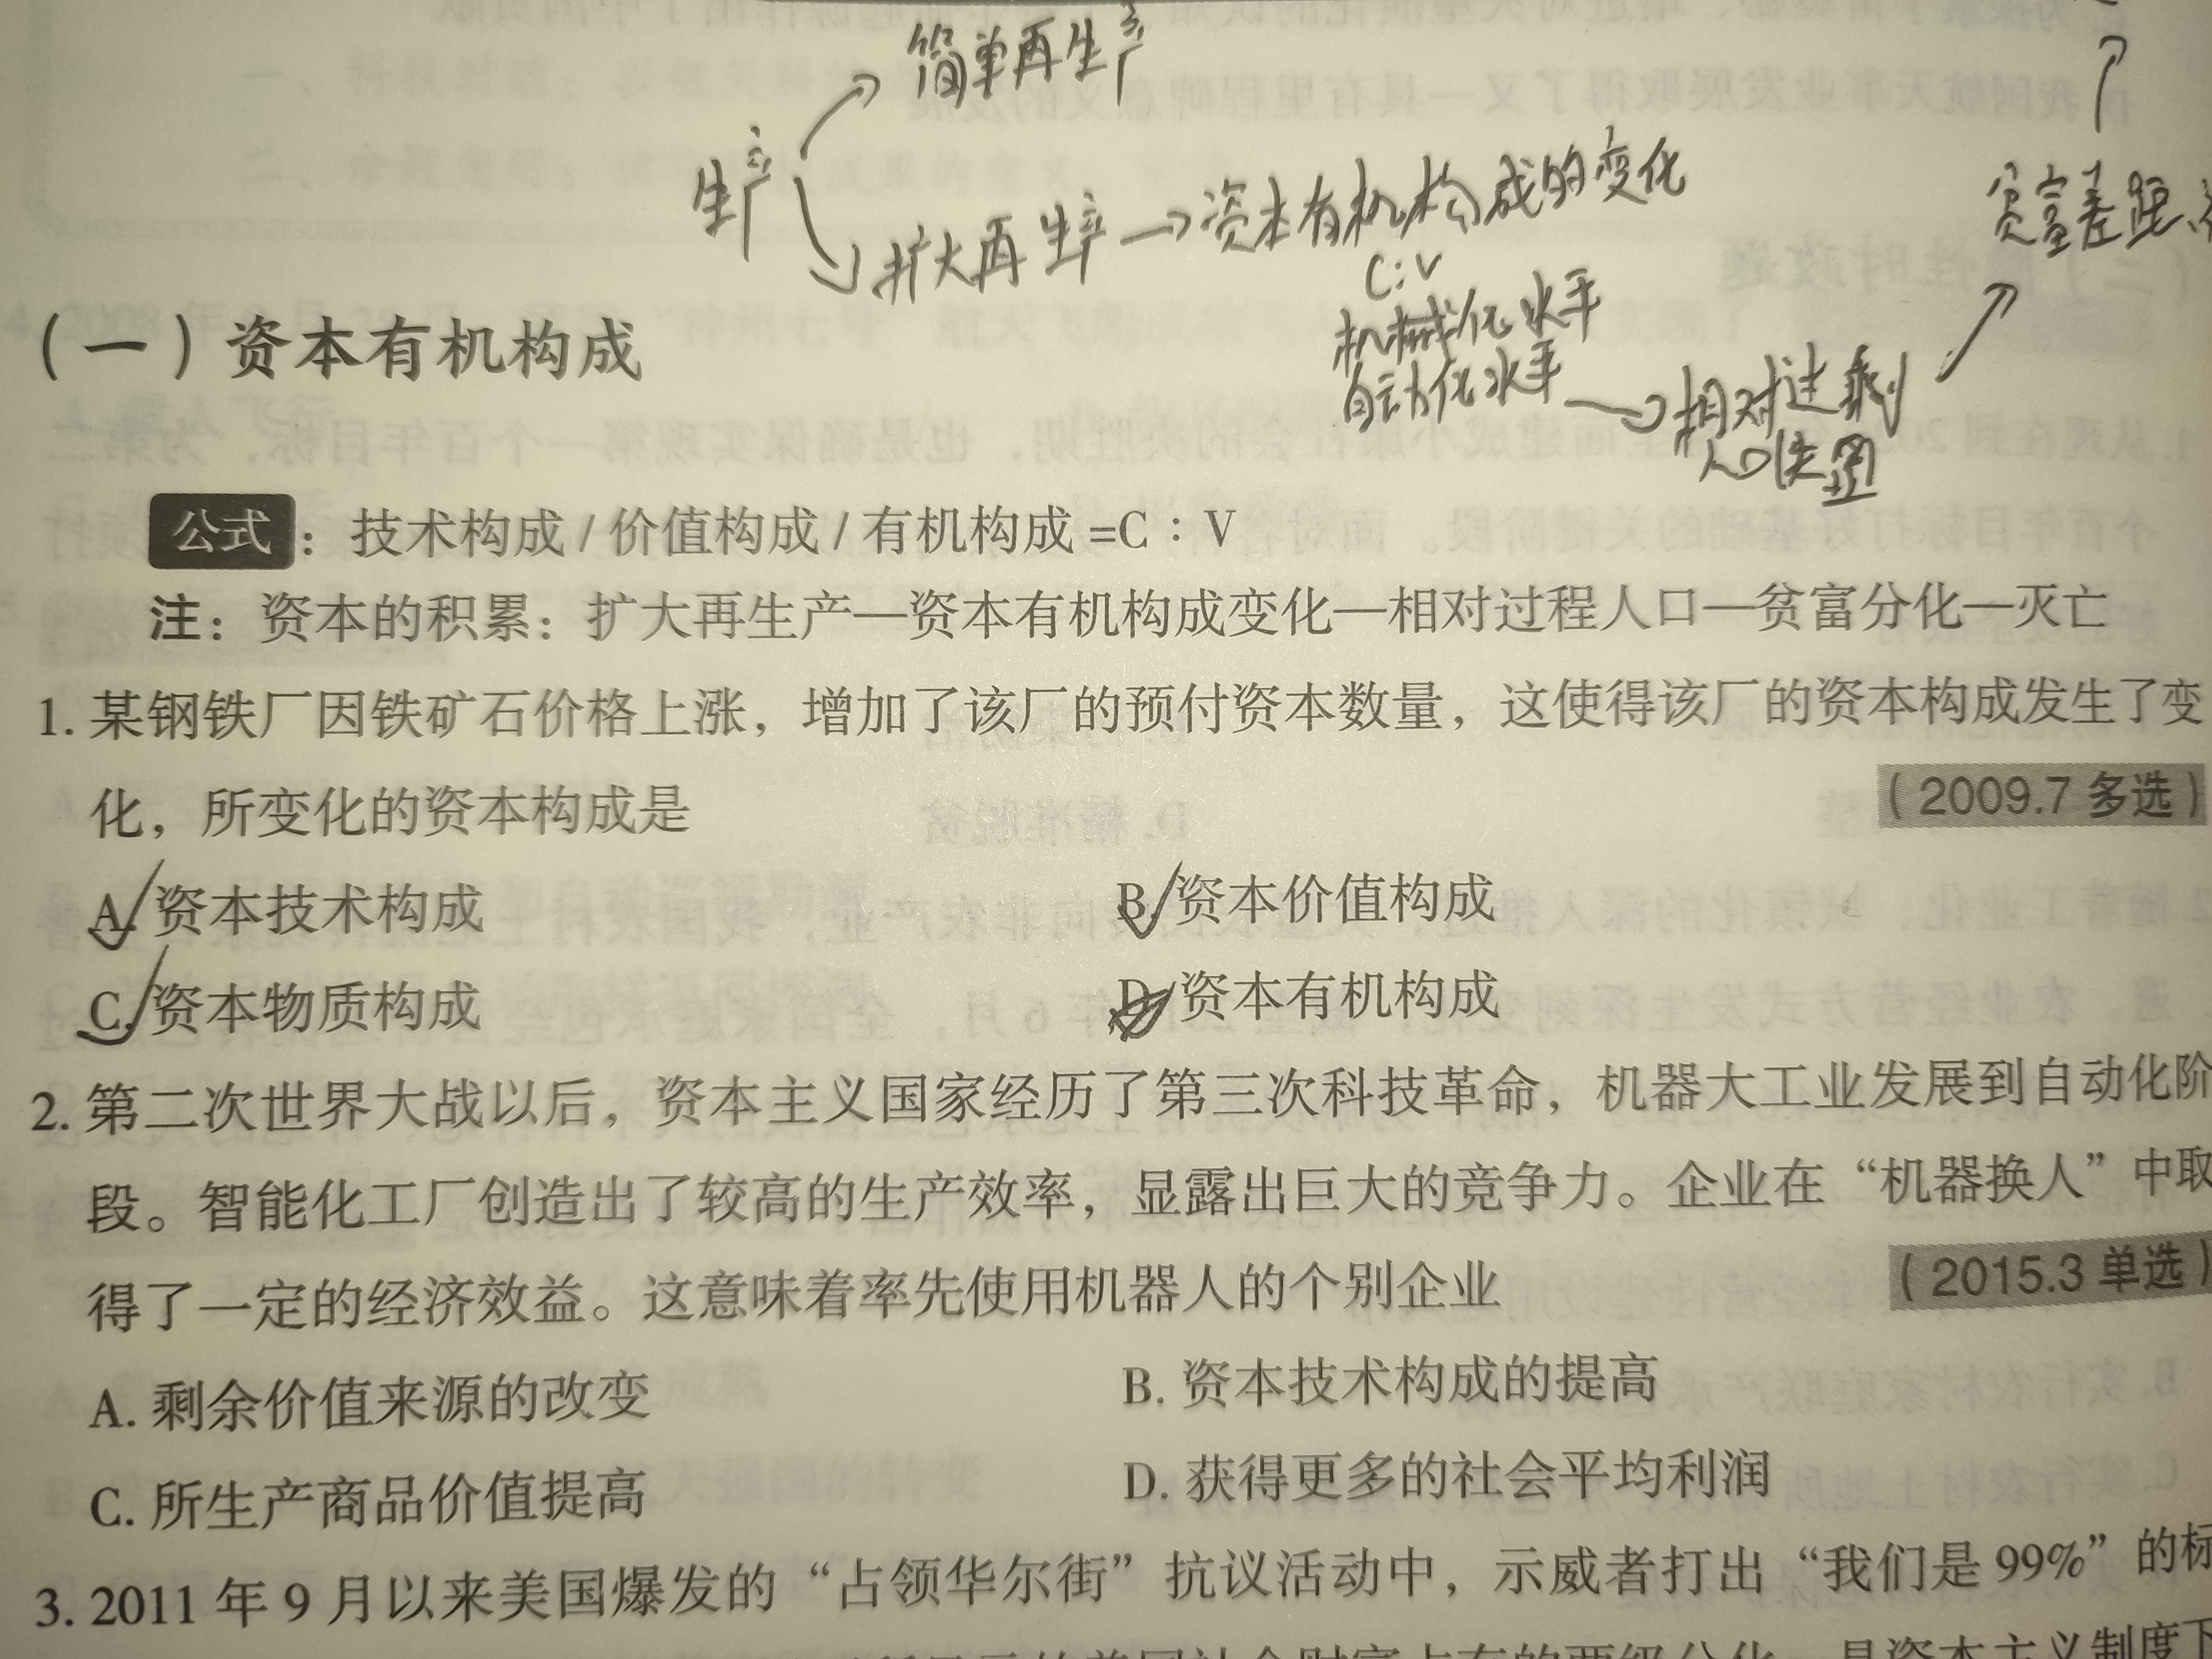 简单再生产
生产
扩大再生产→资本有机构成的变化
C:V
机械化水平
自动化水平→相对过剩
人口失业
贫富差距
(一)资本有机构成
公式：技术构成/价值构成/有机构成=C：V
注：资本的积累：扩大再生产—资本有机构成变化—相对过程人口—贫富分化—灭亡
1. 某钢铁厂因铁矿石价格上涨，增加了该厂的预付资本数量，这使得该厂的资本构成发生了变
化，所变化的资本构成是
(2009.7 多选)
A. 资本技术构成
B. 资本价值构成
C. 资本物质构成
D. 资本有机构成
2. 第二次世界大战以后，资本主义国家经历了第三次科技革命，机器大工业发展到自动化阶
段。智能化工厂创造出了较高的生产效率，显露出巨大的竞争力。企业在“机器换人”中取
得了一定的经济效益。这意味着率先使用机器人的个别企业
(2015.3 单选)
A. 剩余价值来源的改变
B. 资本技术构成的提高
C. 所生产商品价值提高
D. 获得更多的社会平均利润
3. 2011 年 9 月以来美国爆发的“占领华尔街”抗议活动中，示威者打出“我们是 99%”的标
的美国社会财富占有的两级分化，是资本主义制度下